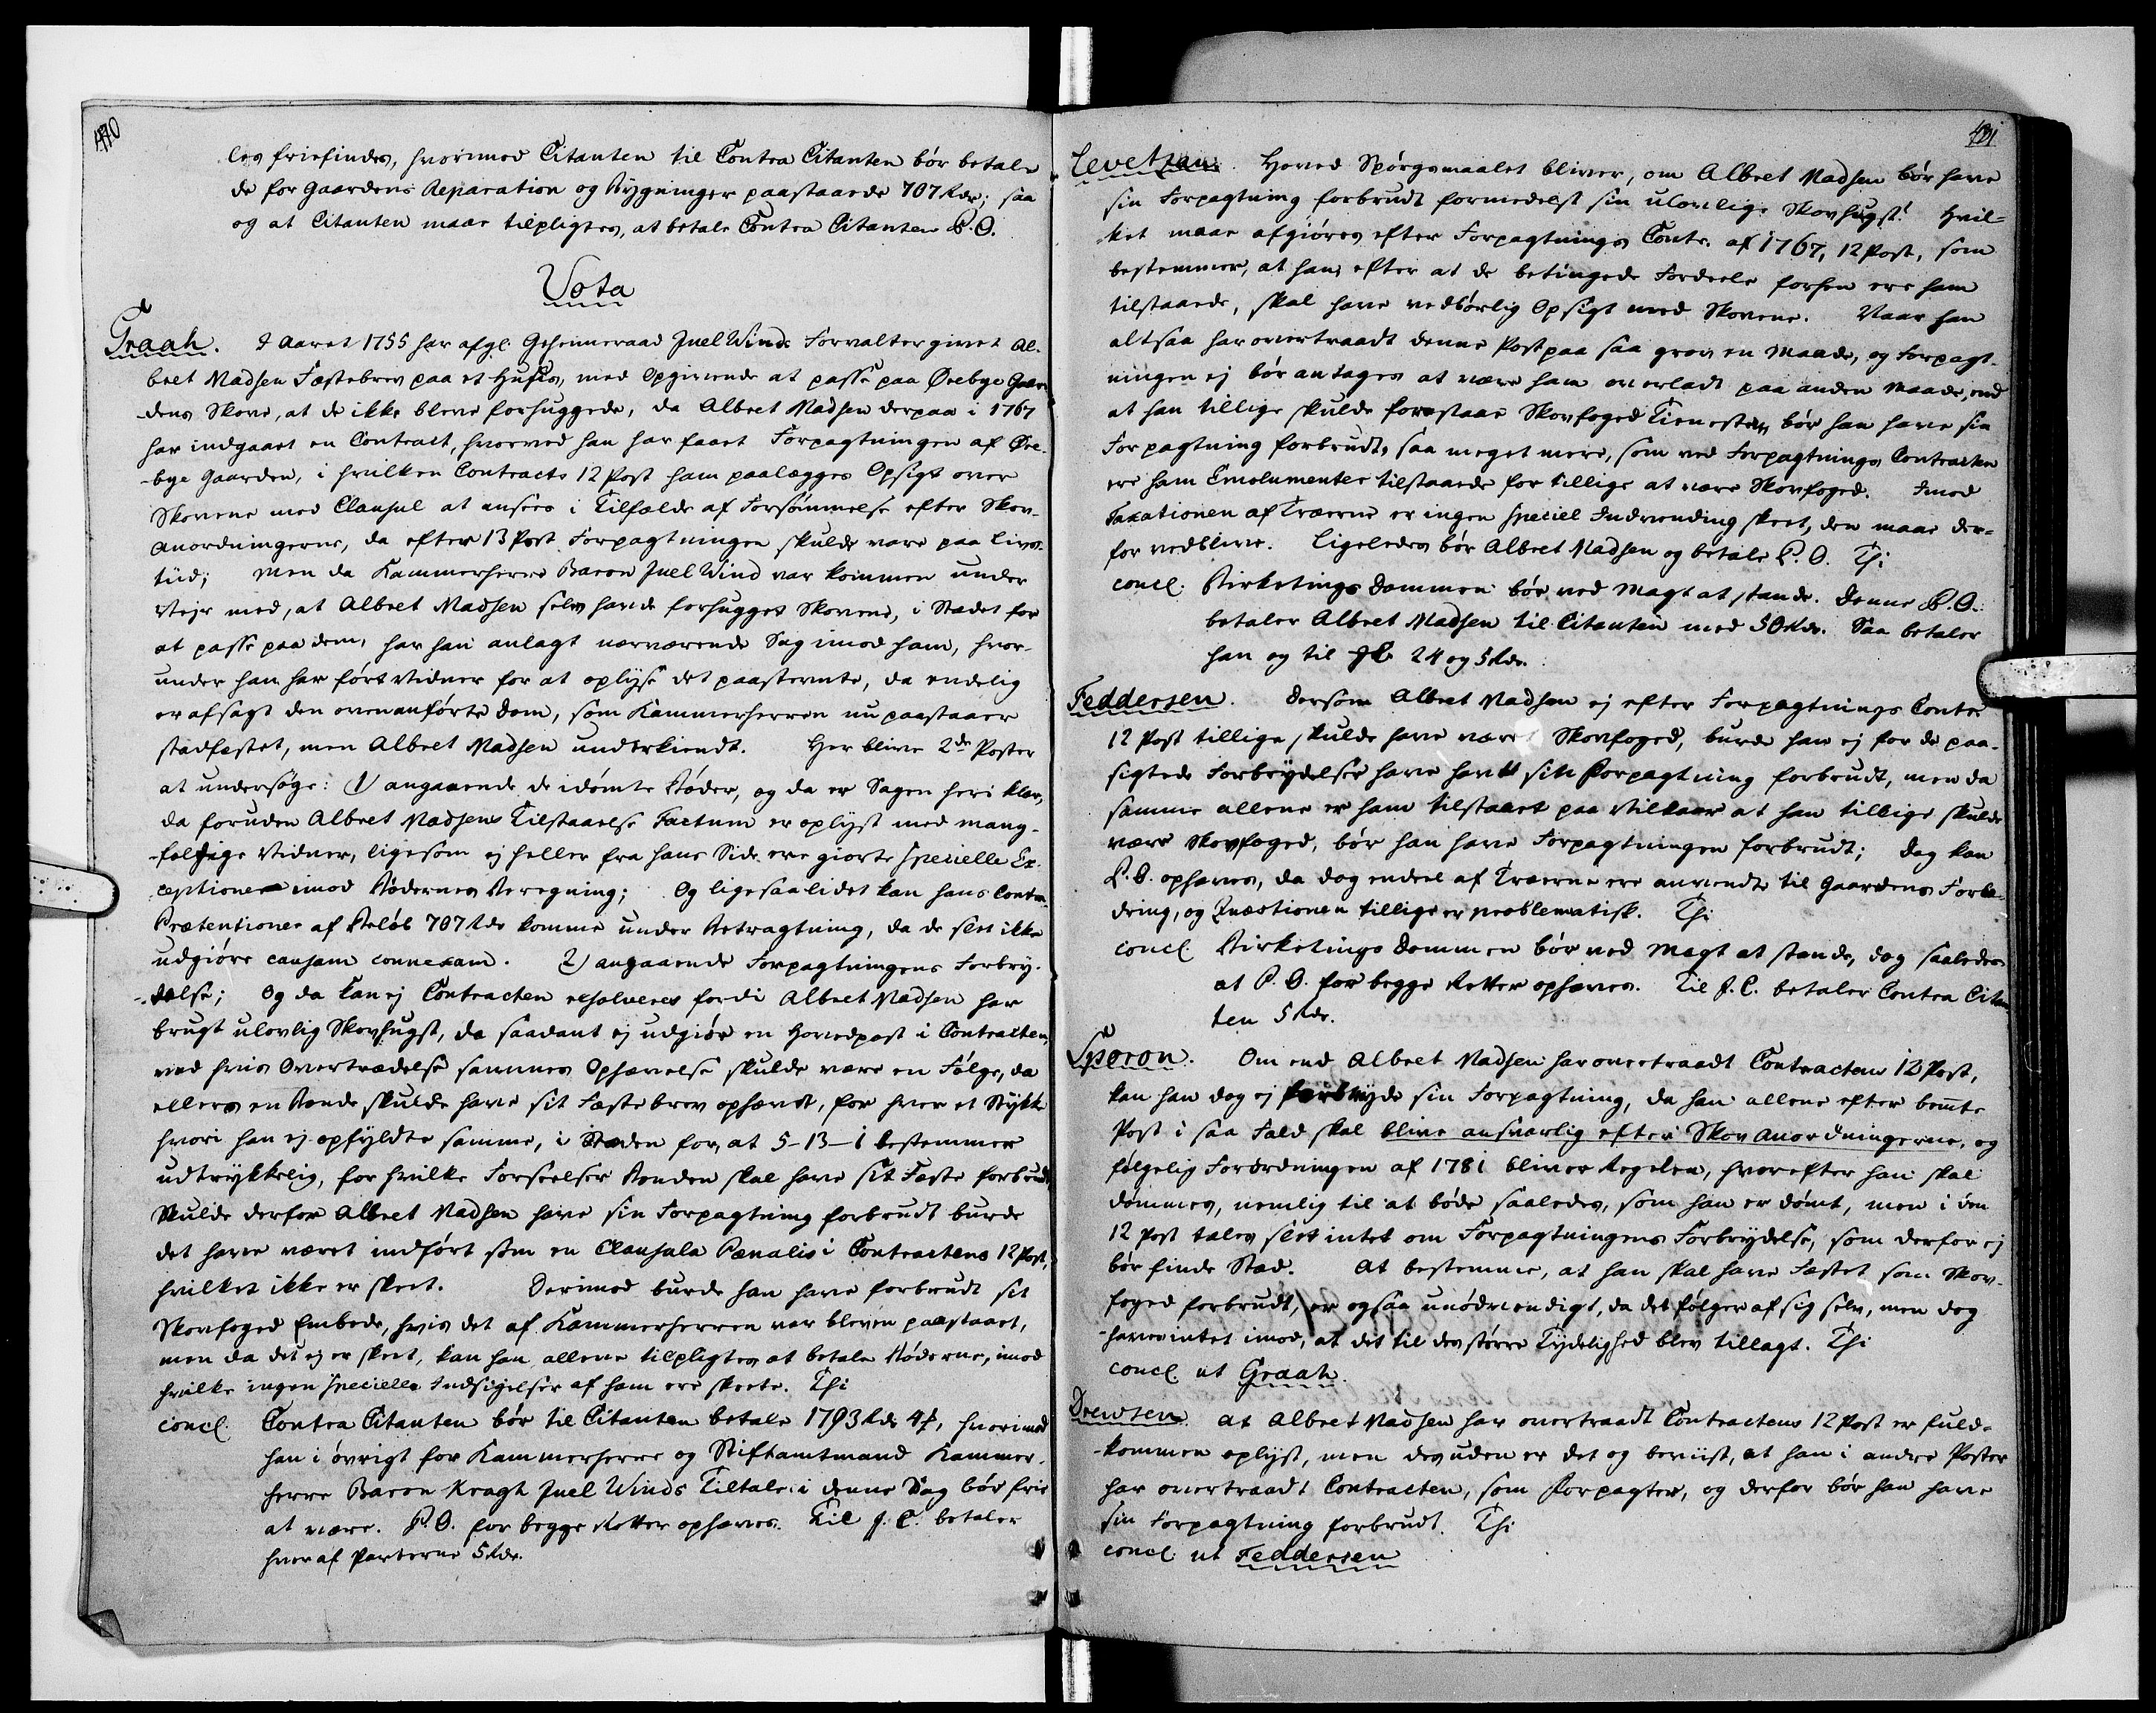 470
les friefindes, hvorimod Citanten til Contra Citanten bør betale
de for Gaardens Reparation og Bygninger paastaaede 707 Rdr; saa
og at Citanten maae tilpligtes, at betale Contra Citanten P. O.
Vota
Graah. I Aaret 1755 har afgl. Geheimeraad Juel Winds Forvalter givet Al-
bret Madsen Fæstebrev paa et Huus, med Opgivende at passe paa Ørebye Gaar-
dens Skove, at de ikke bleve forhuggede, da Albret Madsen derpaa i 1767
har indgaaet en Contract, hvorved han har faaet Forpagtningen af Øre-
bye Gaarden, i hvilken Contracts 12 Post ham paalægges Opsigt over
Skovene med Clausul at ansees i Tilfælde af Forsømmelse efter Skov-
Anordningerne, da efter 13 Post Forpagtningen skulde vare paa Livs-
tiid; Men da Kammerherre Baron Juel Wind var kommen under
Vejr med, at Albret Madsen selv havde forhugget Skovene, i Stædet for
at passe paa dem, har han anlagt nærværende Sag imod ham, hvor-
under han har ført Vidner for at oplyse det paastævnte, da endelig
er afsagt den ovenanførte Dom, som Kammerherren nu paastaaer
stadfæstet, men Albret Madsen underkiendt. Her blive 2de Poster
at undersøge: 1) angaaende de idømte Bøder, og da er Sagen heri klar,
da foruden Albret Madsens Tilstaaelse Factum er oplyst med mang-
foldige Vidner, ligesom ej heller fra hans Side ere giorte specielle Ex-
ceptioner imod Bødernes Beregning; Og ligesaalidet kan hans Contra-
Prætentioner af Beløb 707 Rdr komme under Betragtning, da de slet ikke
udgiøre causam connexam. 2) angaaende Forpagtningens Forbry-
delse; Og da kan ej Contracten exsolveres fordi Albret Madsen har
brugt ulovlig Skovhugst, da saadant ej udgiør en Hovedpost i Contracten,
ved hvis Overtrædelse sammes Ophævelse skulde være en Følge, da
ellers en Bonde skulde have sit Fæstebrev ophævet, for hver et Stykke
hvori han ej opfyldte samme, i Stæden for, at 5-13-1 bestemmer
udtrykkelig, for hvilke Forseelser Bonden skal have sit Fæste forbrudt
Skulde derfor Albret Madsen have sin Forpagtning forbrudt burde
det have været indført som en Clausula Pænalis i Contractens 12 Post,
hvilket ikke er skeet. Derimod burde han have forbrudt sit
Skovfoged Embede, hvis det af Kammerherren var bleven paastaaet,
men da det ej er skeet, kan han allene tilpligtes at betale Bøderne, imod
hvilke ingen specielle Indsigelser af ham ere skeete. Thi
concl. Contra Citanten bør til Citanten betale 1793 Rdr 4 ß, hvorimod
han i øvrigt for Kammerherre og Stiftamtmand Kammer-
herre Baron Kragh Juel Winds Tiltale i denne Sag bør frie
at være. P. O. for begge Retter ophæves. Til J. C. betaler
hver af Parterne 5 Rdr.
471
Levetzau. Hoved Spørgsmaalet bliver, om Albret Madsen bør have
sin Forpagtning forbrudt formedelst sin ulovlige Skovhugst. Hvil-
ket maae afgiøres efter Forpagtnings Contr. af 1767, 12 Post, som
bestemmer, at han, efter at de betingede Fordeele forhen ere ham
tilstaaede, skal have vedbørlig Opsigt med Skovene. Naar han
altsaa har overtraadt denne Post paa saa grov en Maade, og Forpagt-
ningen ej bør antages at være ham overladt paa anden Maade, end
at han tillige skulde forestaae Skovfoged Tienesten, bør han have sin
Forpagtning forbrudt, saa meget mere, som ved Forpagtnings Contracten
ere ham Emolumenter tilstaaede for tillige at være Skovfoged. Imod
Taxationen af Træerne er ingen speciel Indvending skeet, den maae der-
for vedblive. Ligeledes bør Albret Madsen og betale P. O. Thi
concl. Birketings Dommen bør ved Magt at stande. Denne P. O.
betaler Albret Madsen til Citanten med 50 Rdr. Saa betaler
han og til J. C. 24 og 5 Rdr.
Feddersen. Dersom Albret Madsen ej efter Forpagtnings Contr.
12 Post tillige skulde have været Skovfoged, burde han ej for de paa-
sigtede Forbrydelser have havt sin Forpagtning forbrudt, men da
samme allene er ham tilstaaet paa Vilkaar at han tillige skulde
være Skovfoged, bør han have Forpagtningen forbrudt; dog kan
P. O. ophæves, da dog endeel af Træerne ere anvendte til Gaardens Forbe-
dring, og Qvæstionen tillige er problematisk. Thi
concl. Birketings Dommen bør ved Magt at stande, dog saaledes
at P. O. for begge Retter ophæves. Til J. C. betaler Contra Citan-
ten 5 Rdr.
Sporon. Om end Albret Madsen har overtraadt Contractens 12 Post,
kan han dog ej forbryde sin Forpagtning, da han allene efter bemte
Post i saa Fald skal blive ansvarlig efter Skov Anordningerne, og
følgelig Forordningen af 1781 bliver Regelen, hvorefter han skal
dømmes, nemlig til at bøde saaledes, som han er dømt, men i den
12 Post tales slet intet om Forpagtningens Forbrydelse, som derfor ej
bør finde Stæd. At bestemme, at han skal have Fæstet som Skov-
foged forbrudt, er ogsaa unødvendigt, da det følger af sig selv, men dog
haves intet imod, at det til des større Tydelighed blev tillagt. Thi
concl. ut Graah.
Drewsen. At Albret Madsen har overtraadt Contractens 12 Post er fuld-
kommen oplyst, men desuden er det og beviist, at han i andre Poster
har overtraadt Contracten, som Forpagter, og derfor bør han have
sin Forpagtning forbrudt. Thi
concl. ut Feddersen